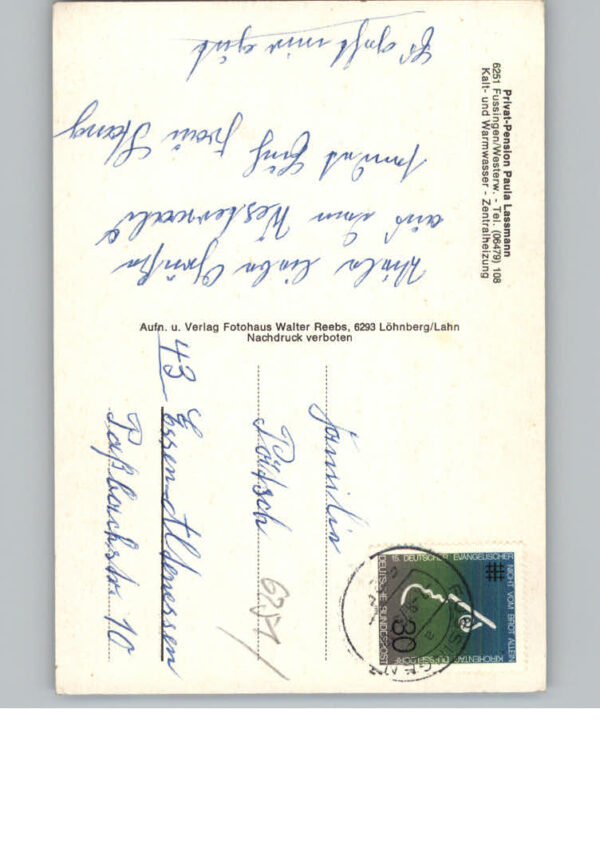 Privat-Pension Paula Lassmann
6251 Fussingen/Westerw. - Tel. (06479) 108
Kalt- und Warmwasser - Zentralheizung
Viele liebe Grüße
aus dem Westerwald
sendet Euch Frau Stang
Es geht mir gut
Aufn. u. Verlag Fotohaus Walter Reebs, 6293 Löhnberg/Lahn
Nachdruck verboten
Familie
Pötsch
43 Essen-Altenessen
Paßbachstr 10
6251
15. DEUTSCHER EVANGELISCHER
KIRCHENTAG DÜSSELDORF
NICHT VOM BROT ALLEIN
DEUTSCHE BUNDESPOST
30
FUSSINGEN